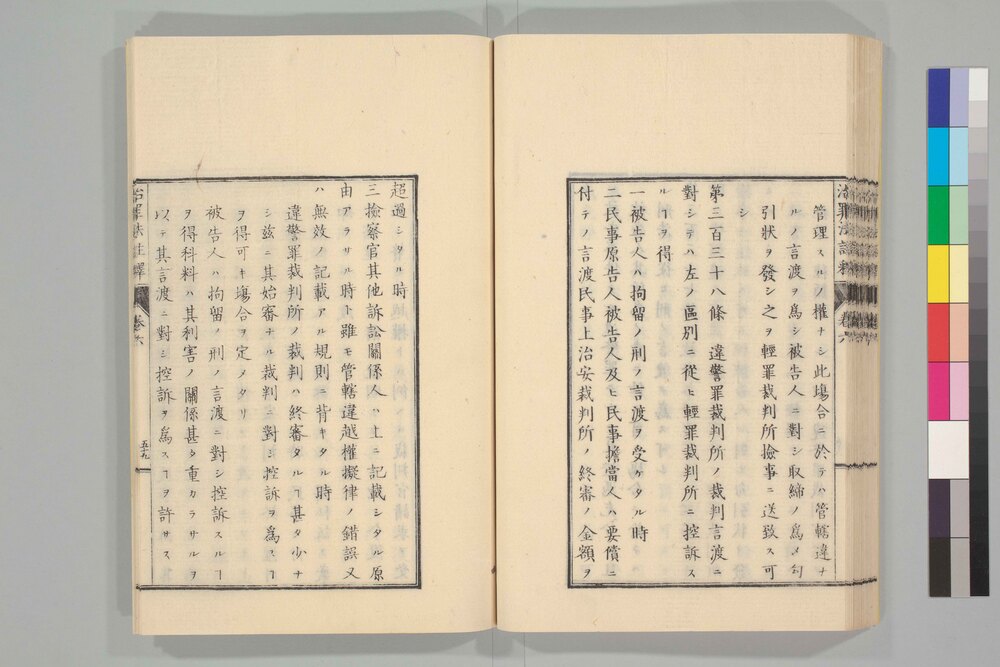 治罪法註釋 卷六
管理スルノ權ナシ此塲合ニ於テハ管轄違ナ
ルノ言渡ヲ爲シ被告人ニ對シ取締ノ爲メ勾
引狀ヲ發シ之ヲ輕罪裁判所撿事ニ送致ス可
シ
第三百三十八條 違警罪裁判所ノ裁判言渡ニ
對シテハ左ノ區別ニ從ヒ輕罪裁判所ニ控訴ス
ルヿヲ得
一被告人ハ拘留ノ刑ノ言渡ヲ受ケタル時
二民事原告人被告人及ヒ民事擔當人ハ要償ニ
付テノ言渡民事上治安裁判所ノ終審ノ金額ヲ
超過シタル時
三撿察官其他訴訟關係人ハ上ニ記載シタル原
由アラサル時ト雖モ管轄違越權擬律ノ錯誤又
ハ無效ノ記載アル規則ニ背キタル時
違警罪裁判所ノ裁判ハ終審タルヿ甚タ少ナ
シ茲ニ其始審ナル裁判ニ對シ控訴ヲ爲スヿ
ヲ得可キ塲合ヲ定メタリ
被告人ハ拘留ノ刑ノ言渡ニ對シ控訴スルヿ
ヲ得科料ハ其利害ノ關係甚タ重カラサルヲ
以テ其言渡ニ對シ控訴ヲ爲スヿヲ許サス
治罪法註釋 卷六 五十九